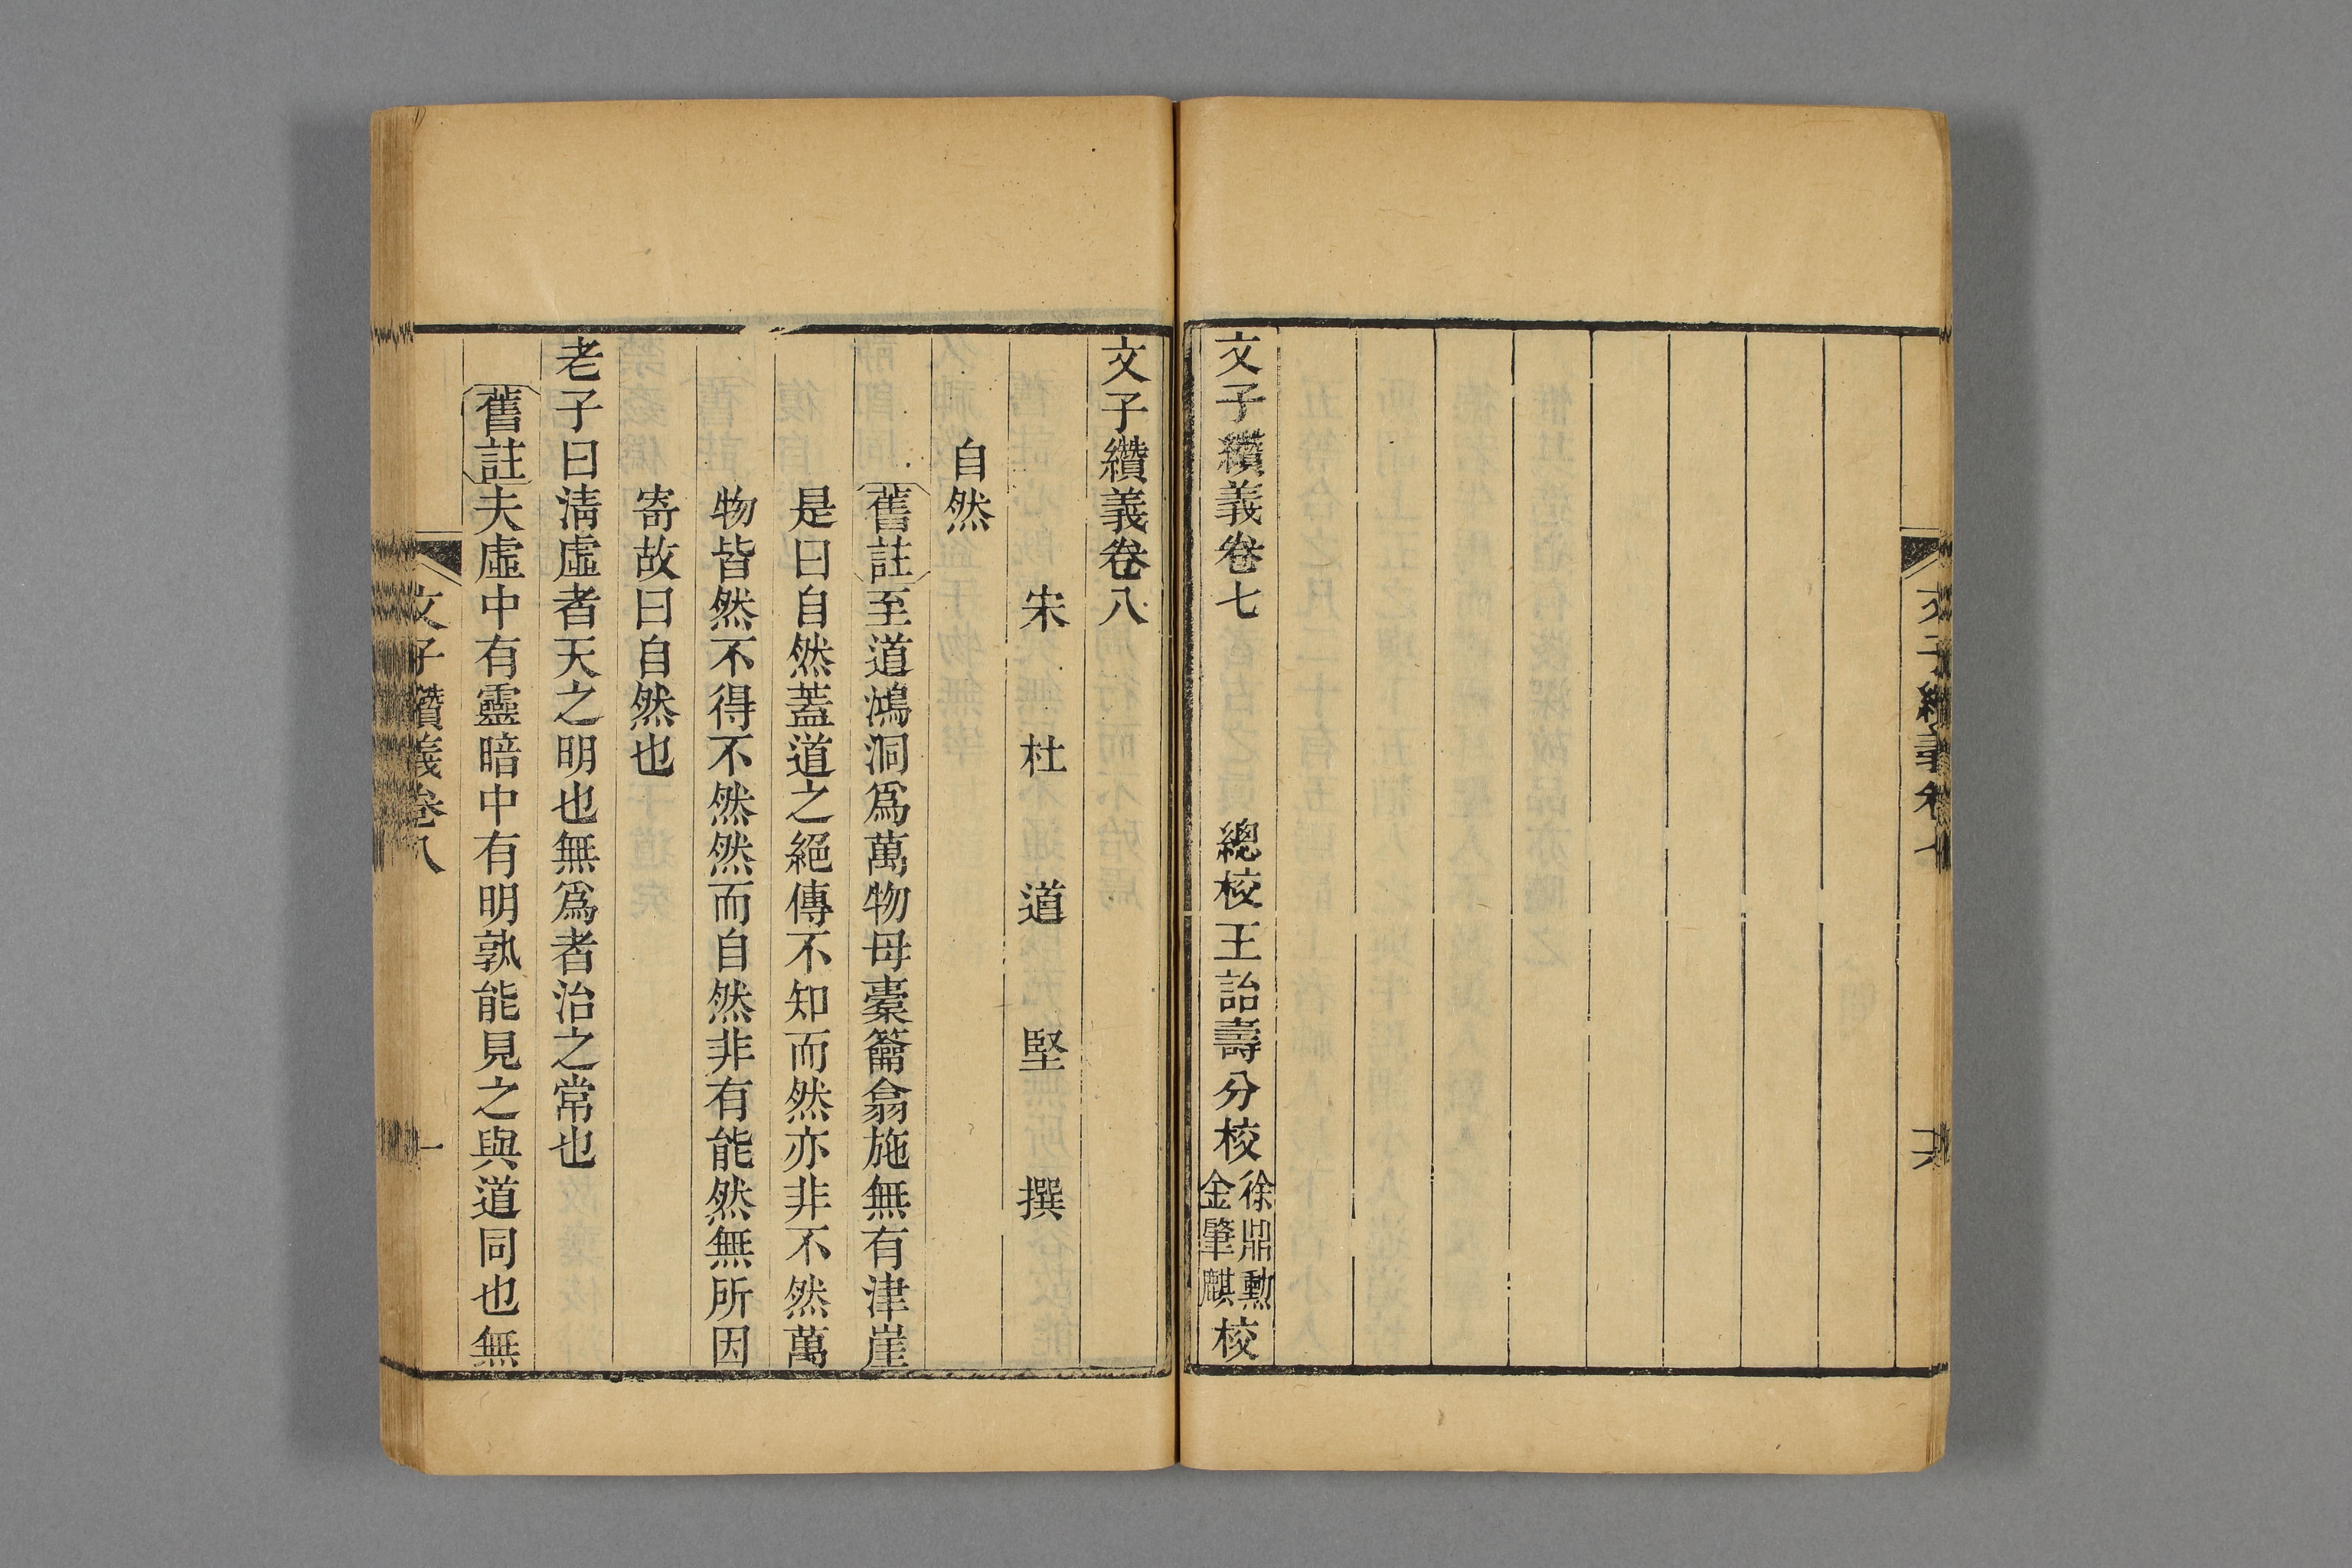 文子纘義卷七　總校王詒壽分校徐鼎勳金肇麒校
文子纘義卷八
宋　杜　道　堅　撰
自然
舊註至道鴻洞爲萬物母橐籥翕施無有津崖
是曰自然蓋道之絕傳不知而然亦非不然萬
物皆然不得不然然而自然非有能然無所因
寄故曰自然也
老子曰淸虛者天之明也無爲者治之常也
舊註夫虛中有靈暗中有明孰能見之與道同也無
文子纘義卷八　一